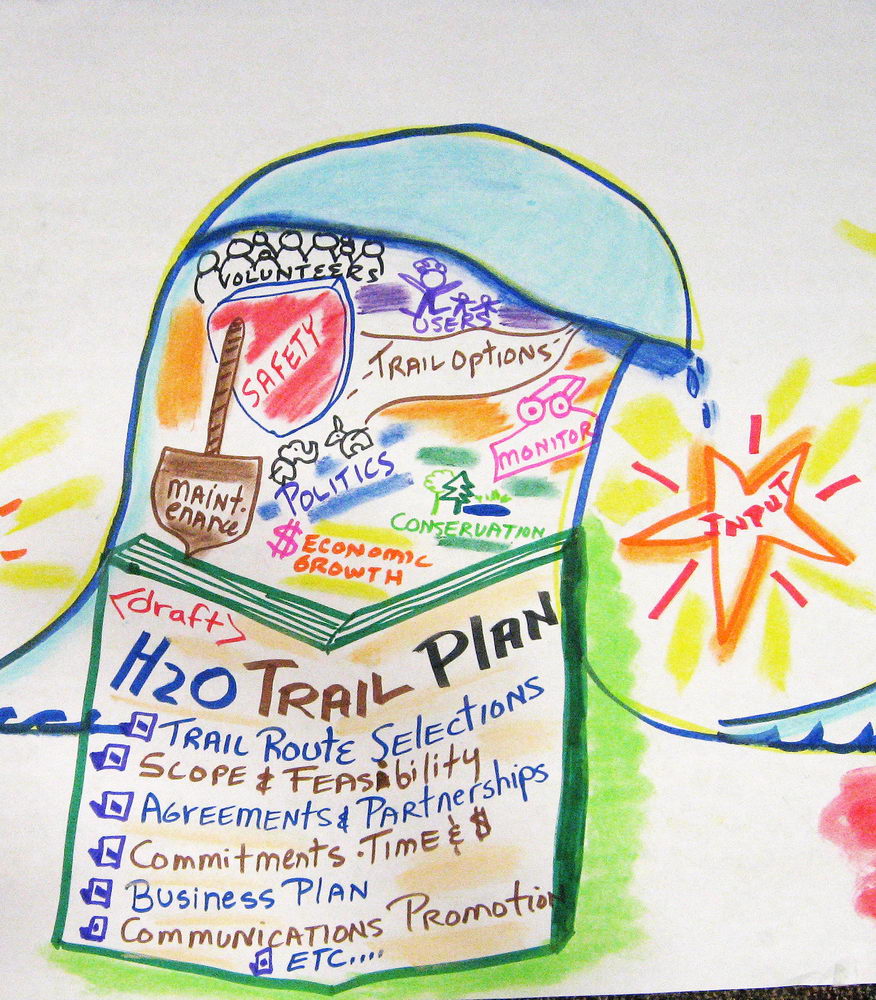 VOLUNTEERS
USERS
SAFETY
TRAIL OPTIONS
MONITOR
MAINT-
enance
POLITICS
CONSERVATION
$ ECONOMIC
GROWTH
INPUT
<draft>
H2O TRAIL PLAN
TRAIL ROUTE SELECTIONS
SCOPE & FEASibility
AGREEMENTS & PARtnerships
Commitments · TIME & $
BUSINESS PLAN
COMMUNICATIONS PROMOTION
ETC....